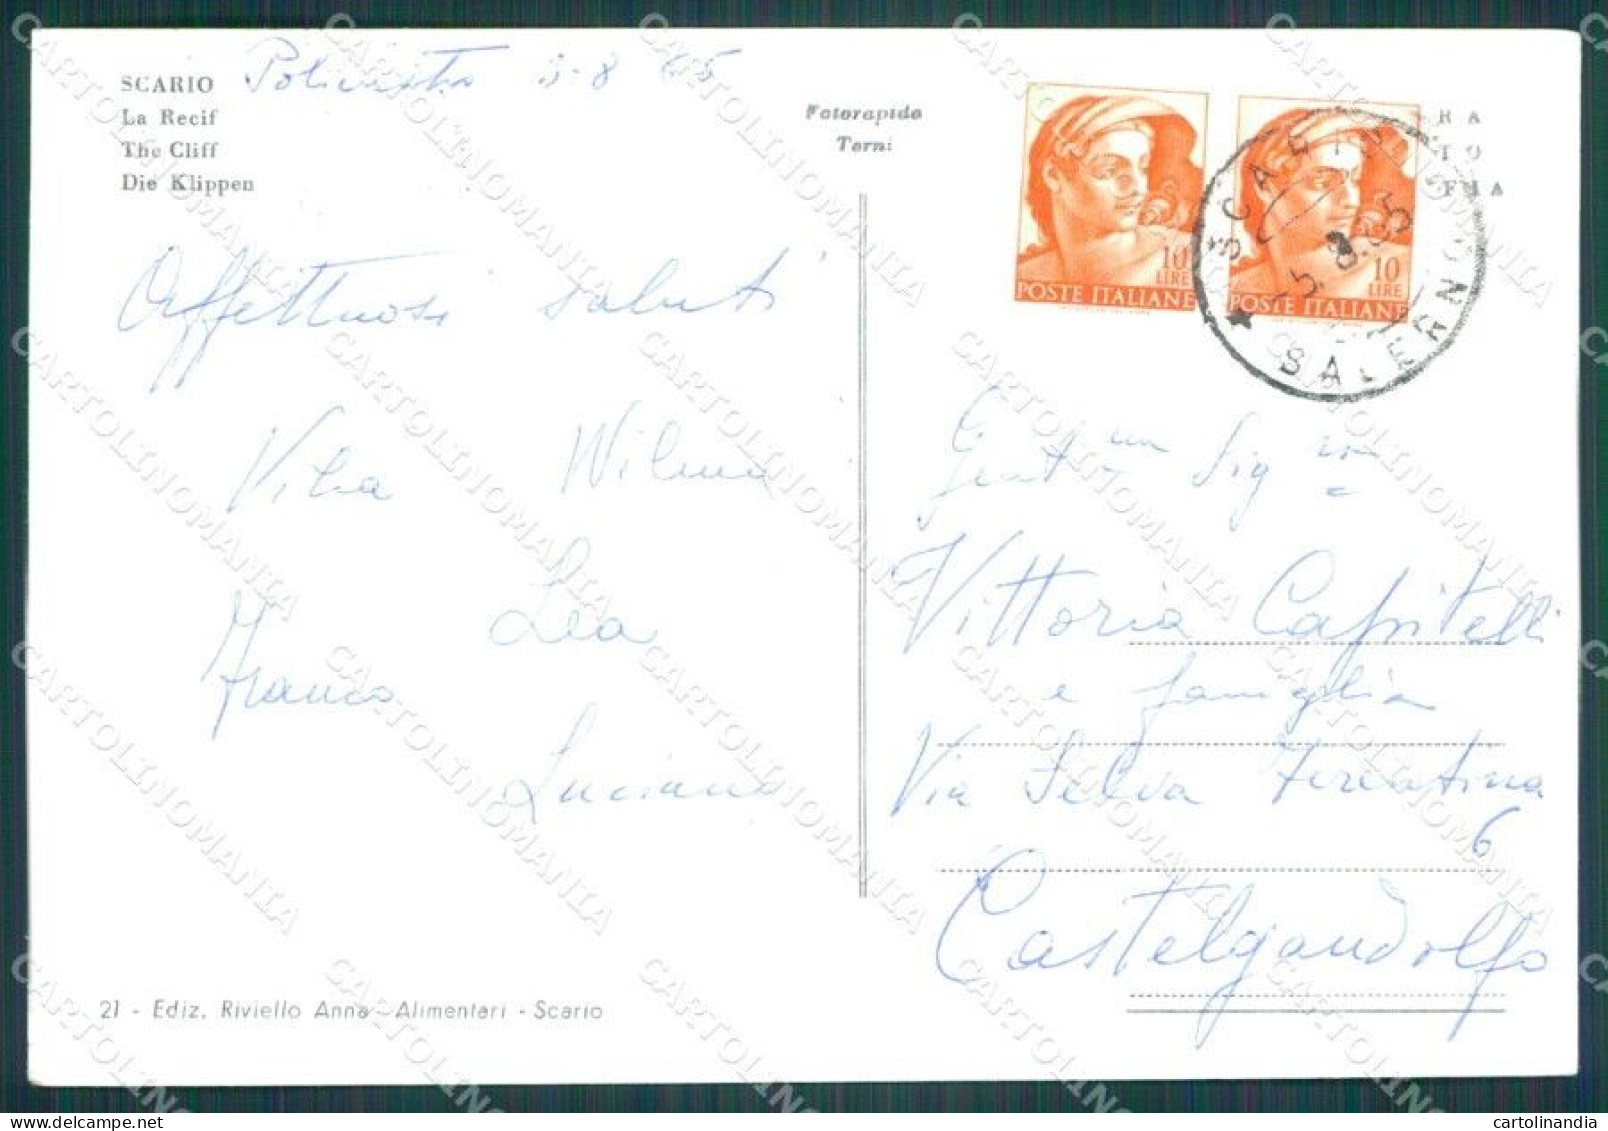 SCARIO
La Recif
The Cliff
Die Klippen
3-8 65
Fotorapida
Terni
10
LIRE
POSTE ITALIANE
10
LIRE
POSTE ITALIANE
SCARIO
5.8.65
SALERNO
RA
TO
FIA
Affettuosi saluti
Wilma
Lea
Franco
Luciano
Gent.ma Sig.na
Vittoria Capitelli
e famiglia
Via Selva Ferentina
6
Castelgandolfo
21 - Ediz. Riviello Anna - Alimentari - Scario
CARTOLINOMANIA
cartolinandia